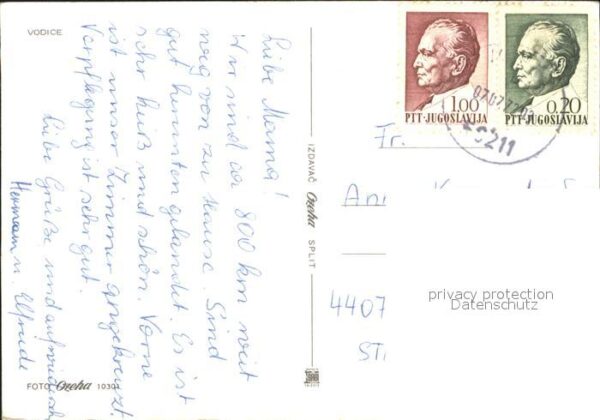 VODICE
Liebe Mama!
Wir sind ca 800 km weit
weg von zu Hause. Sind
gut herunten gelandet. Es ist
sehr heiß und schön. Vorne
ist unser Zimmer angekreuzt.
Verpflegung ist sehr gut.
Liebe Grüße und auf
Hermann u. Elfriede
FOTO Ozeha 10301
IZDAVAČ Ozeha SPLIT
1.00
PTT-JUGOSLAVIJA
0.20
PTT-JUGOSLAVIJA
Fr.
4407
privacy protection
Datenschutz